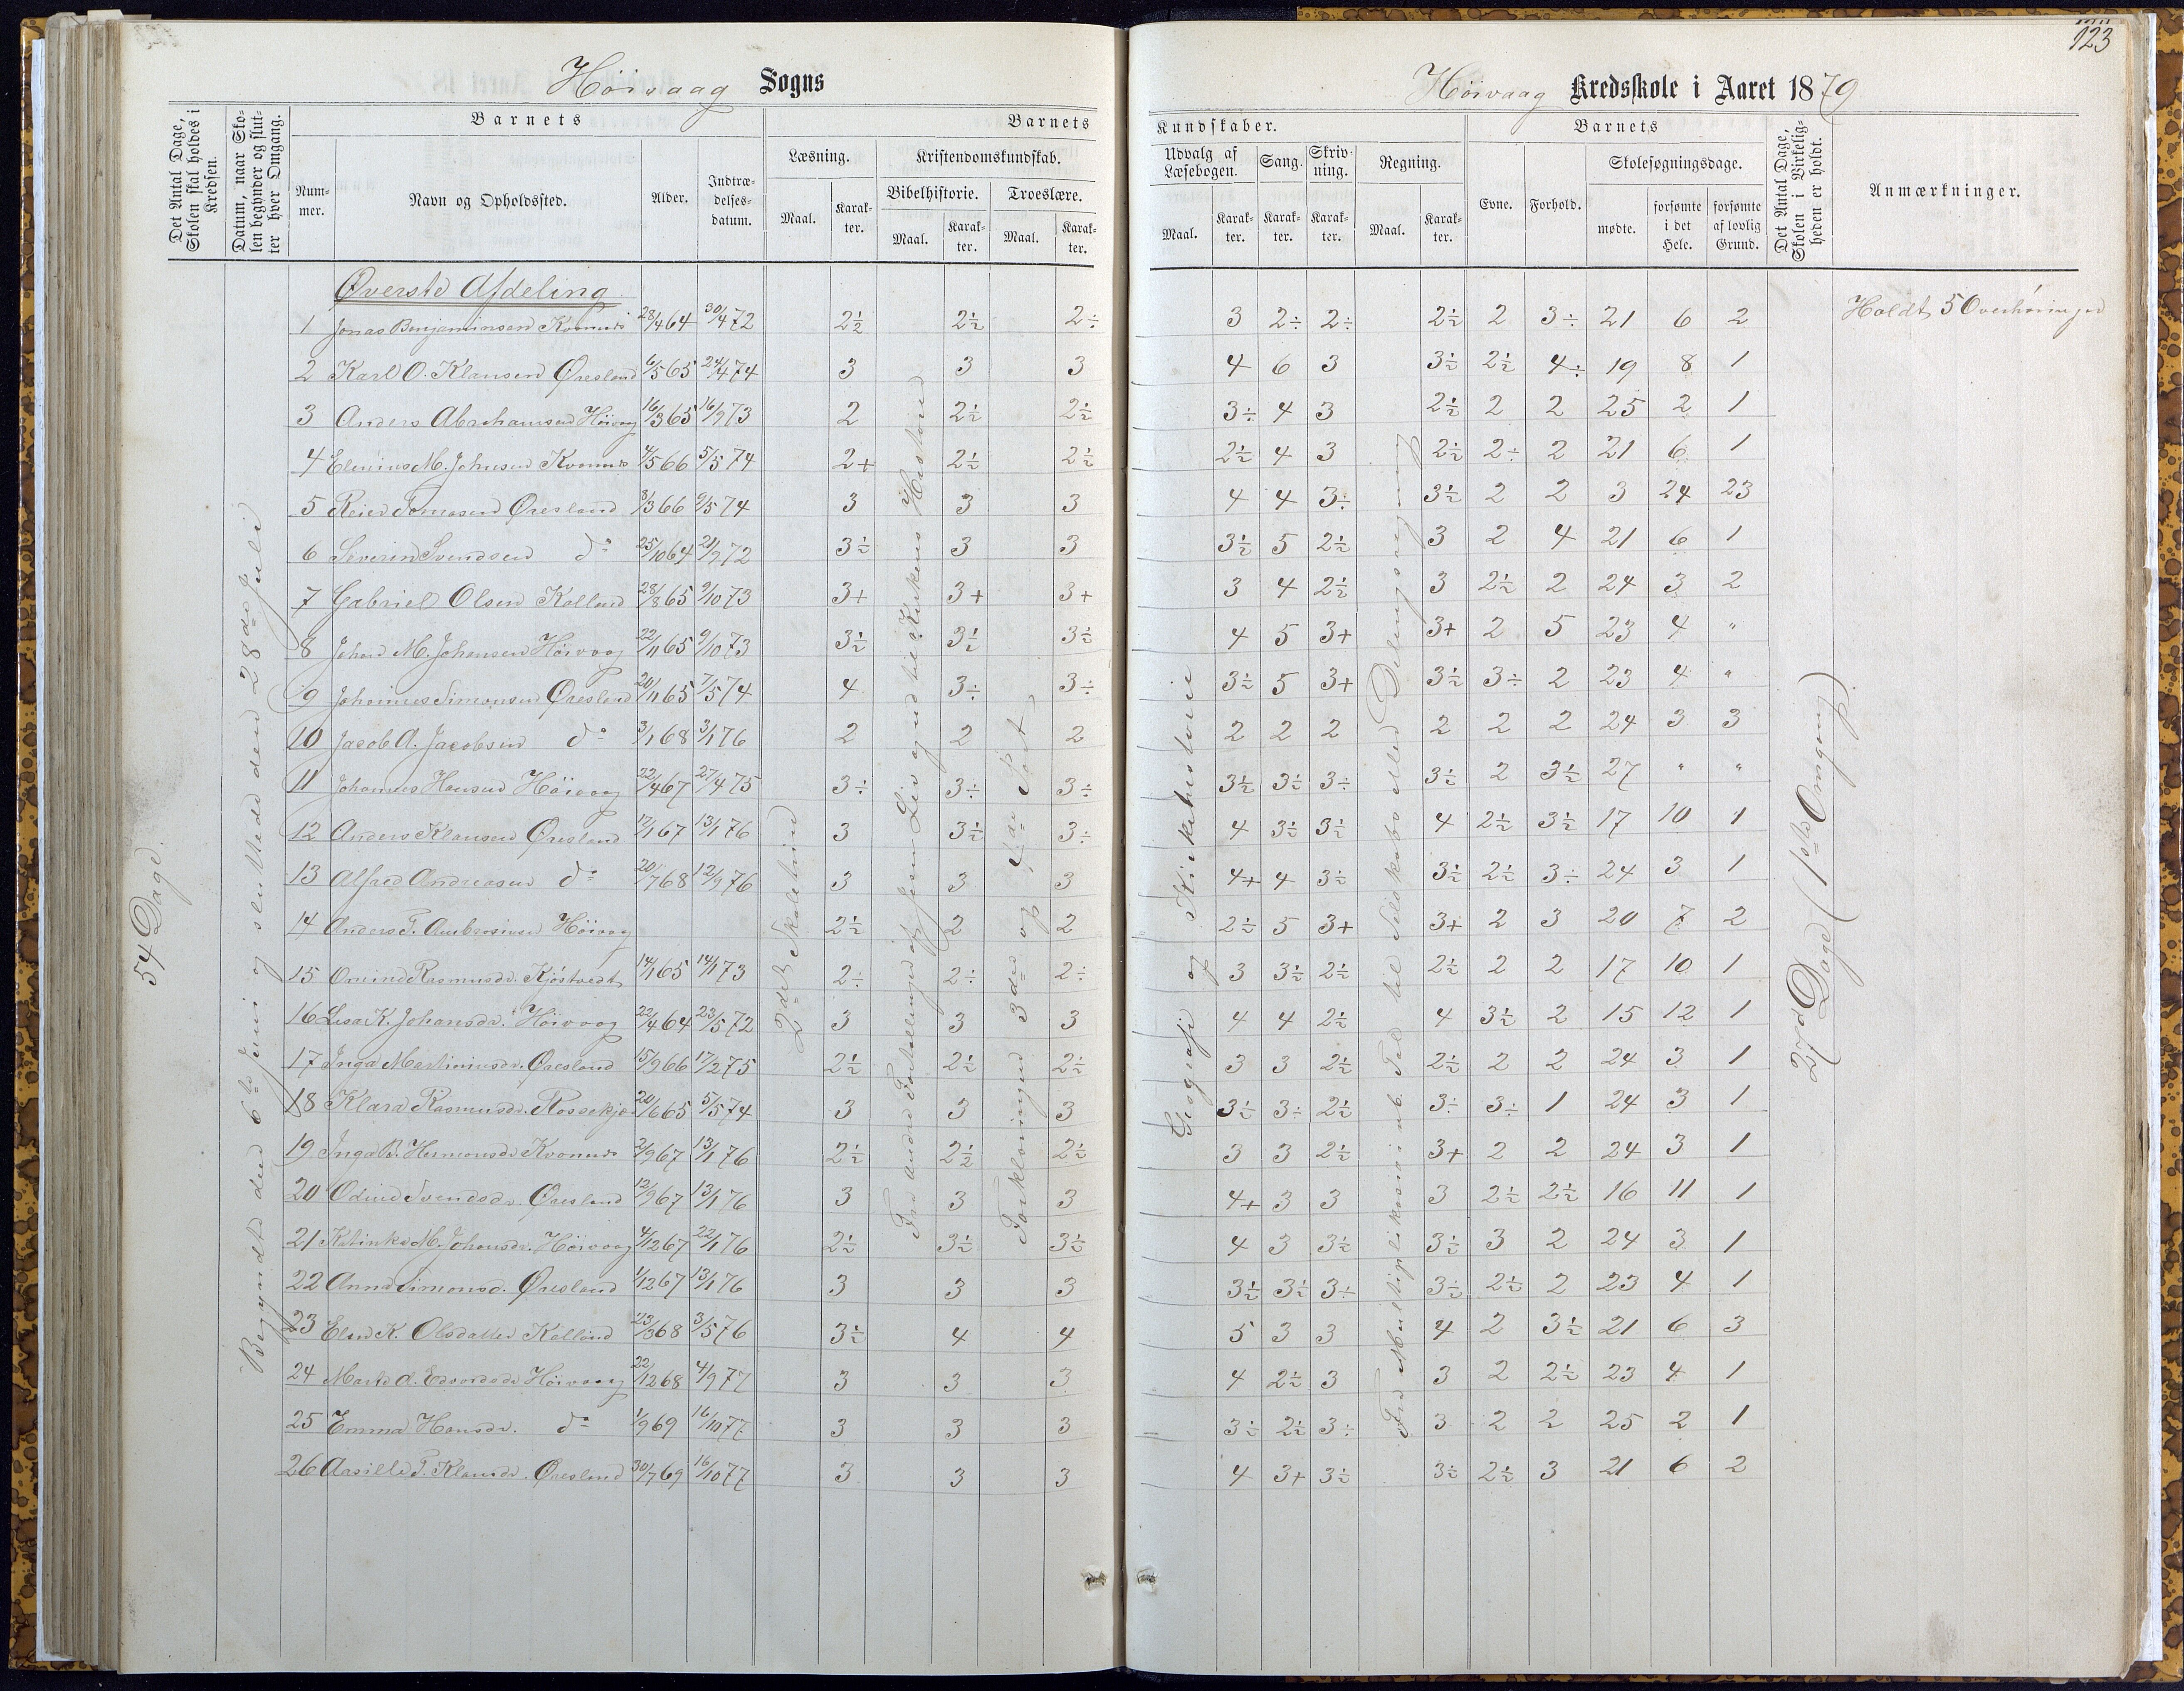 123
Höivaag Sogns
Höivaag Kredsskole i Aaret 1879
Det Antal Dage, Skolen skal holdes i Kredsen.
Datum, naar Skolen begynder og slutter hver Omgang.
Barnets
Nummer.
Navn og Opholdssted.
Alder.
Indtrædelsesdatum.
Barnets
Læsning.
Maal.
Karakter.
Kristendomskundskab.
Bibelhistorie.
Maal.
Karakter.
Troeslære.
Maal.
Karakter.
Kundskaber.
Udvalg af Læsebogen.
Maal.
Karakter.
Sang.
Karakter.
Skrivning.
Karakter.
Regning.
Maal.
Karakter.
Barnets
Evne.
Forhold.
Skolesøgningsdage.
mødte.
forsømte i det Hele.
forsømte af lovlig Grund.
Det Antal Dage, Skolen i Virkeligheden er holdt.
Anmærkninger.
54 Dage.
Begyndte den 6te Juni og sluttede den 28de Juli
2det Skoletrin
Øverste Afdeling
Holdt 5 Overhøringer
1 Jonas Benjaminsen 28/4 64 30/4 72 2½ 2½ 2÷ 3 2÷ 2÷ 2½ 2 3÷ 21 6 2
2 Karl O. Klausen Øresland 6/5 65 24/4 74 3 3 3 4 6 3 3½ 2½ 4÷ 19 8 1
3 Anders Abrahamsen Höivaag 16/3 65 16/9 73 2 2½ 2½ 3÷ 4 3 2½ 2 2 25 2 1
4 M. Johnsen 4/5 66 5/5 74 2+ 2½ 2½ 2½ 4 3 2½ 2÷ 2 21 6 1
5 Reier Tomasen Øresland 3/3 66 9/5 74 3 3 3 4 4 3÷ 3½ 2 2 3 24 23
6 Severin Svendsen do 25/10 64 21/9 72 3½ 3 3 3½ 5 2½ 3 2 4 21 6 1
7 Gabriel Olsen Kalland 28/8 65 9/10 73 3+ 3+ 3+ 3 4 2½ 3 2½ 2 24 3 2
8 Johan M. Johansen Höivaag 22/11 65 9/10 73 3½ 3½ 3½ 4 5 3+ 3+ 2 5 23 4 "
9 Johannes Simonsen Øresland 20/11 65 7/5 74 4 3÷ 3÷ 3½ 5 3+ 3½ 3÷ 2 23 4 "
10 Jacob A. Jacobsen do 3/1 68 3/1 76 2 2 2 2 2 2 2 2 2 24 3 3
11 Johannes Hansen Höivaag 22/4 67 27/4 75 3÷ 3÷ 3÷ 3½ 3½ 3÷ 3½ 2 3½ 27 " "
12 Anders Klausen Øresland 12/1 67 13/1 76 3 3½ 3÷ 4 3½ 3½ 4 2½ 3½ 17 10 1
13 Alfred Andreasen do 20/7 68 12/9 76 3 3 3 4+ 4 3½ 3½ 2½ 3÷ 24 3 1
14 Anders T. Ambrosiusen Höivaag 2½ 2 2 2½ 5 3+ 3+ 2 3 20 7 2
15 Rasmusdr. Kjöstvedt 14/1 65 14/1 73 2÷ 2÷ 2÷ 3 3½ 2½ 2½ 2 2 17 10 1
16 Lisa K. Johansdr. Höivaag 22/4 64 23/5 72 3 3 3 4 4 2½ 4 3½ 2 15 12 1
17 Inga Martiniusdr. Øresland 15/9 66 17/2 75 2½ 2½ 2½ 3 3 2½ 2½ 2 2 24 3 1
18 Klara Rasmusdr. 20/6 65 5/5 74 3 3 3 3½ 3÷ 2½ 3÷ 3÷ 1 24 3 1
19 Inga B. Hermonsdr. 2/9 67 13/1 76 2½ 2½ 2½ 3 3 2½ 3+ 2 2 24 3 1
20 Odine Svendsdr. Øresland 12/9 67 13/1 76 3 3 3 4+ 3 3 3 2½ 2½ 16 11 1
21 Katinka M. Johansdr. Höivaag 4/12 67 22/1 76 2½ 3½ 3½ 4 3 3½ 3½ 3 2 24 3 1
22 Anna Simonsd. Øresland 1/12 67 13/1 76 3 3 3 3½ 3½ 3÷ 3÷ 2½ 2 23 4 1
23 Elen K. Olsdatter Kalland 23/3 68 3/5 76 3½ 4 4 5 3 3 4 2 3½ 21 6 3
24 Marte A. Edvardsdr Höivaag 22/12 68 4/9 77 3 3 3 4 2½ 3 3 2 2½ 23 4 1
25 Emma Hansdr. do 1/9 69 16/10 77 3 3 3 3½ 2½ 3÷ 3 2 2 25 2 1
26 Aasille T. Klausdr. Øresland 30/7 69 16/10 77 3 3 3 4 3+ 3½ 3½ 2½ 3 21 6 2
Fra andre Fortællinger af Jesu Liv og ud til Kirkens Historie
Forklaringen 3die og 4de Part
Geografi og Kirkehistorie
Fra Multiplikasion i ub. Tal til Selskabs eller Delingsregning
27 Dage (1ste Omgang)